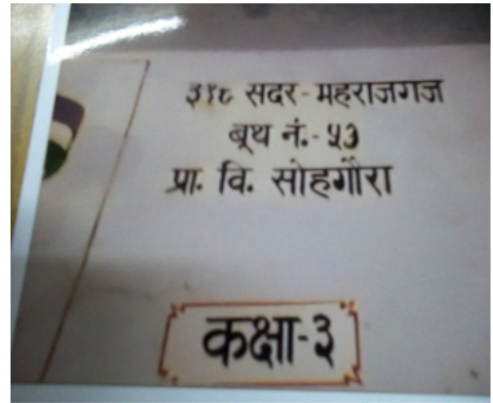 ३१८ सदर - महराजगज
बूथ नं.- ५३
प्रा. वि. सोहगौरा
कक्षा-३